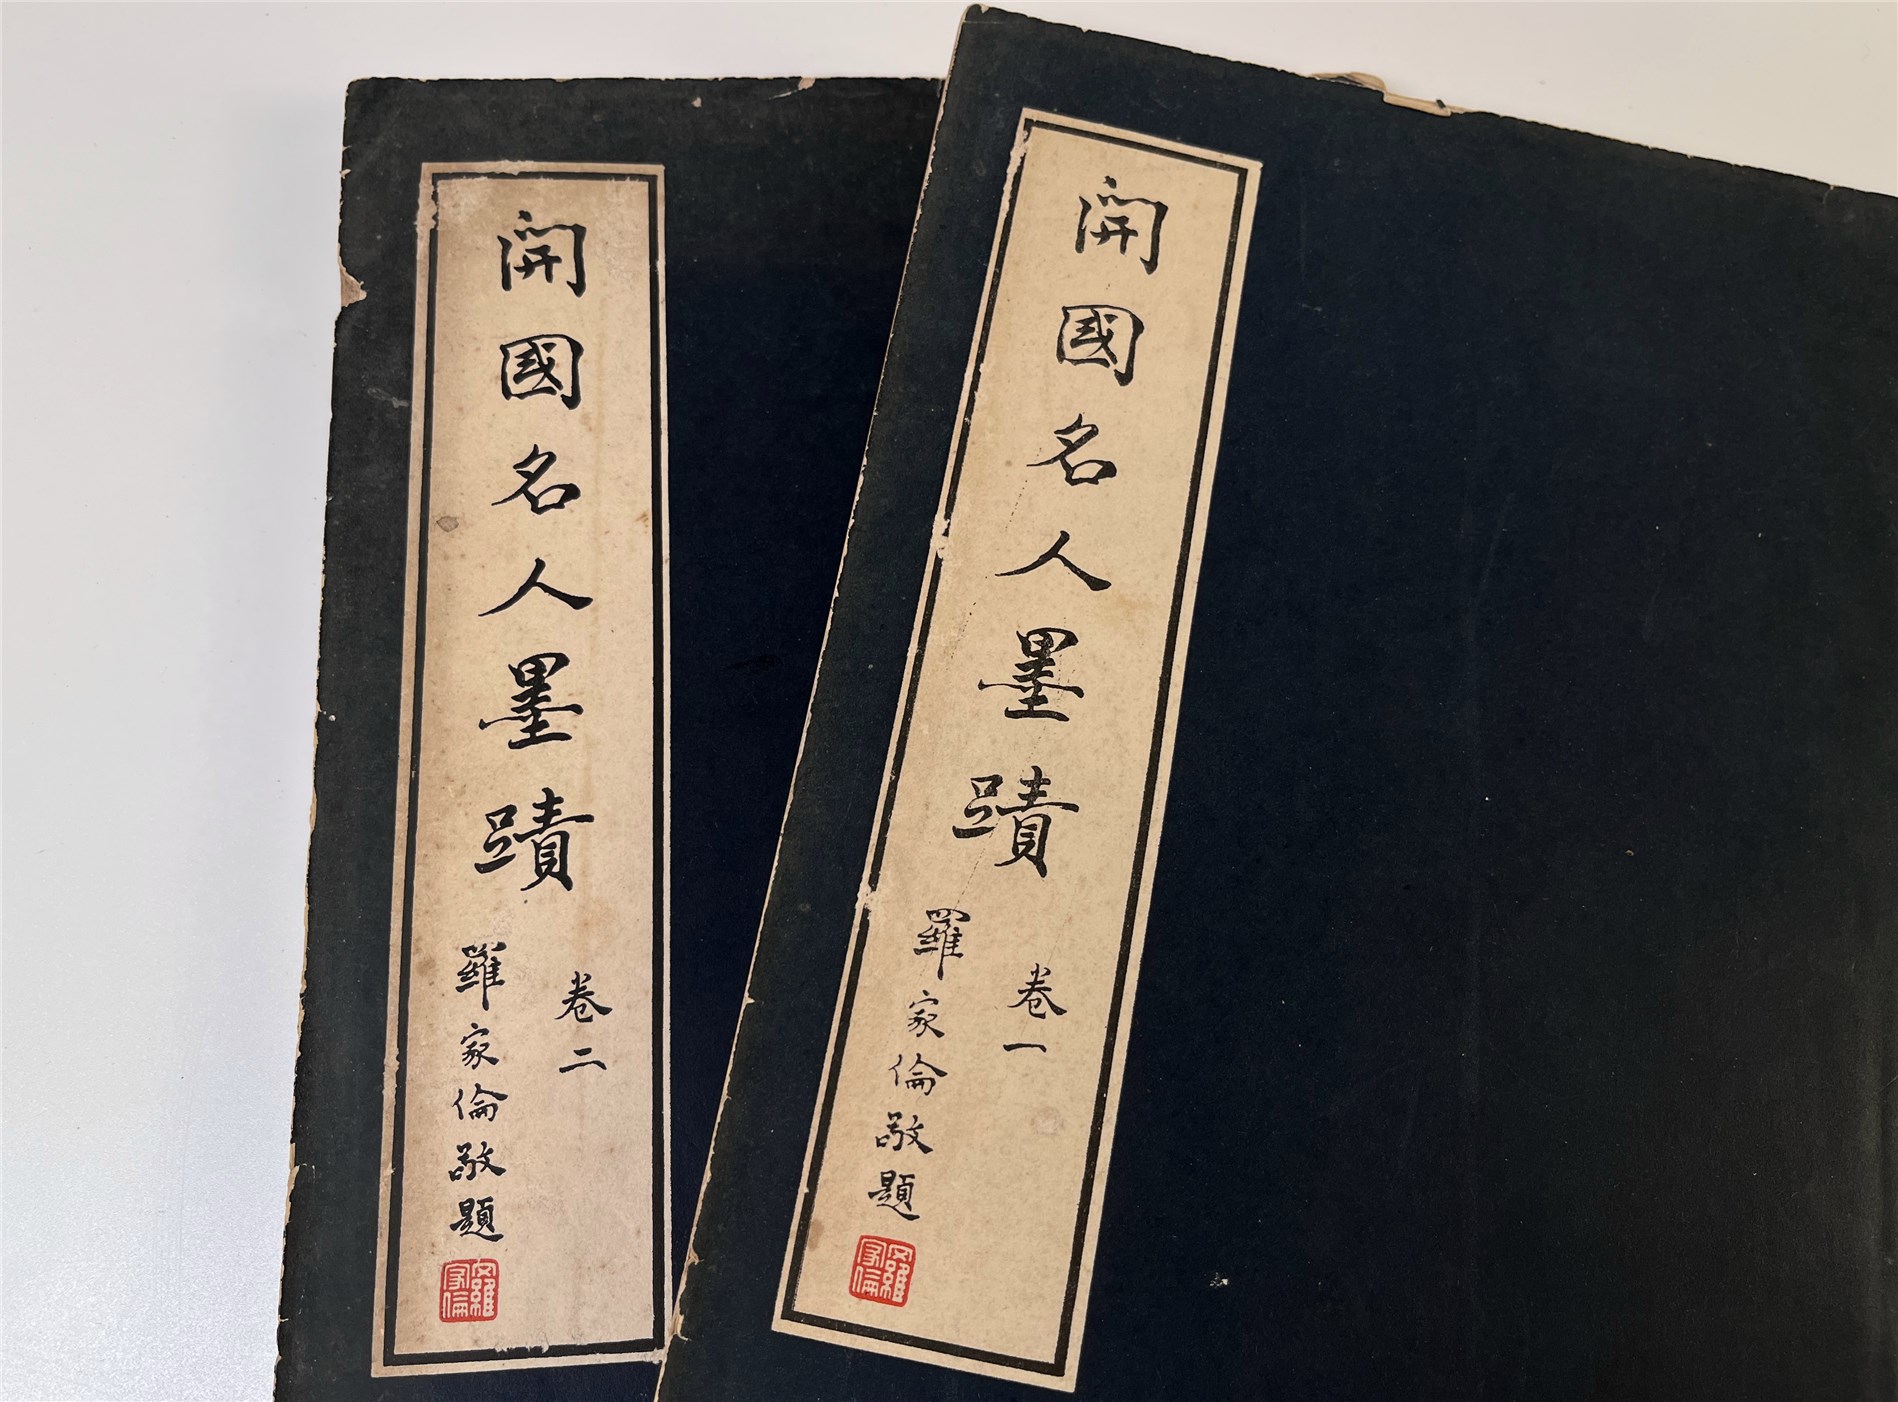 開國名人墨蹟
卷二
羅家倫敬題
羅家倫
開國名人墨蹟
卷一
羅家倫敬題
羅家倫